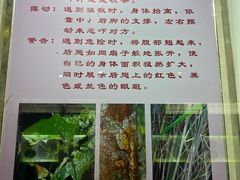 摆动：遇到强敌时，身体抬高，依
靠中、后脚的支撑，左右摆
动来恐吓对方。
警告：遇到危险时，将股部翘起来，
后翅如同扇子般地张开，使
自己的身体面积猛然扩大，
同时展示后翅上的红色、黑
色或兰色的眼斑。